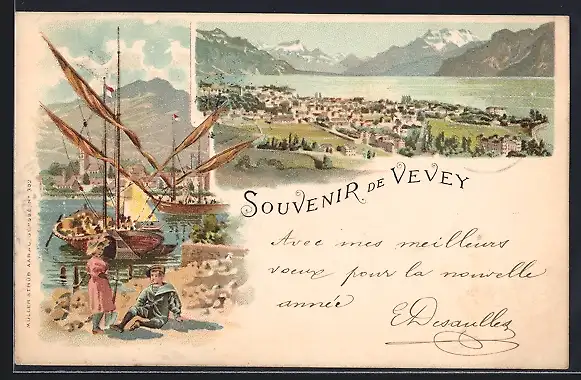 SOUVENIR DE VEVEY
Avec mes meilleurs
voeux pour la nouvelle
année
E. Desaulles
MÜLLER & TRÜB AARAU